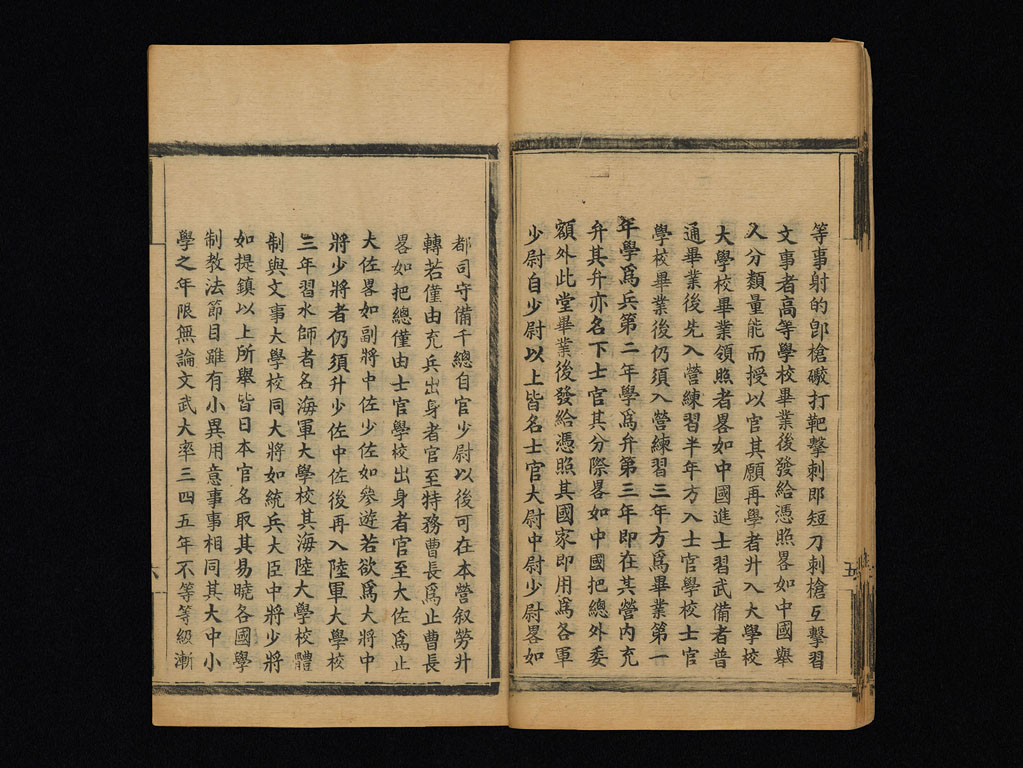 等事射的卽槍礮打靶擊刺卽短刀刺槍互擊習
文事者高等學校畢業後發給憑照畧如中國舉
人分類量能而授以官其願再學者升入大學校
大學校畢業領照者畧如中國進士習武備者普
通畢業後先入營練習半年方入士官學校士官
學校畢業後仍須入營練習三年方爲畢業第一
年學爲兵第二年學爲弁第三年卽在其營內充
弁其弁亦名下士官其分際畧如中國把總外委
額外此堂畢業後發給憑照其國家卽用爲各軍
少尉自少尉以上皆名士官大尉中尉少尉畧如
五
都司守備千總自官少尉以後可在本營叙勞升
轉若僅由充兵出身者官至特務曹長爲止曹長
畧如把總僅由士官學校出身者官至大佐爲止
大佐畧如副將中佐少佐如參遊若欲爲大將中
將少將者仍須升少佐中佐後再入陸軍大學校
三年習水師者名海軍大學校其海陸大學校體
制與文事大學校同大將如統兵大臣中將少將
如提鎮以上所舉皆日本官名取其易曉各國學
制教法節目雖有小異用意事事相同其大中小
學之年限無論文武大率三四五年不等等級漸
六